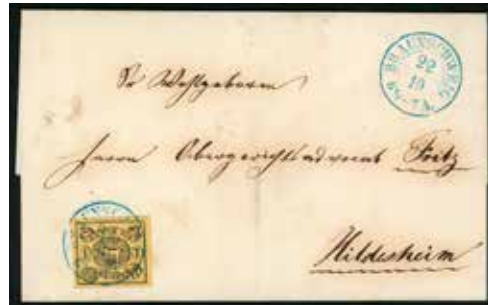 BRAUNSCHWEIG
22
10
6½-7A.
Sr Wohlgeboren
Herrn Obergerichtsadvocat Fritz
Hildesheim